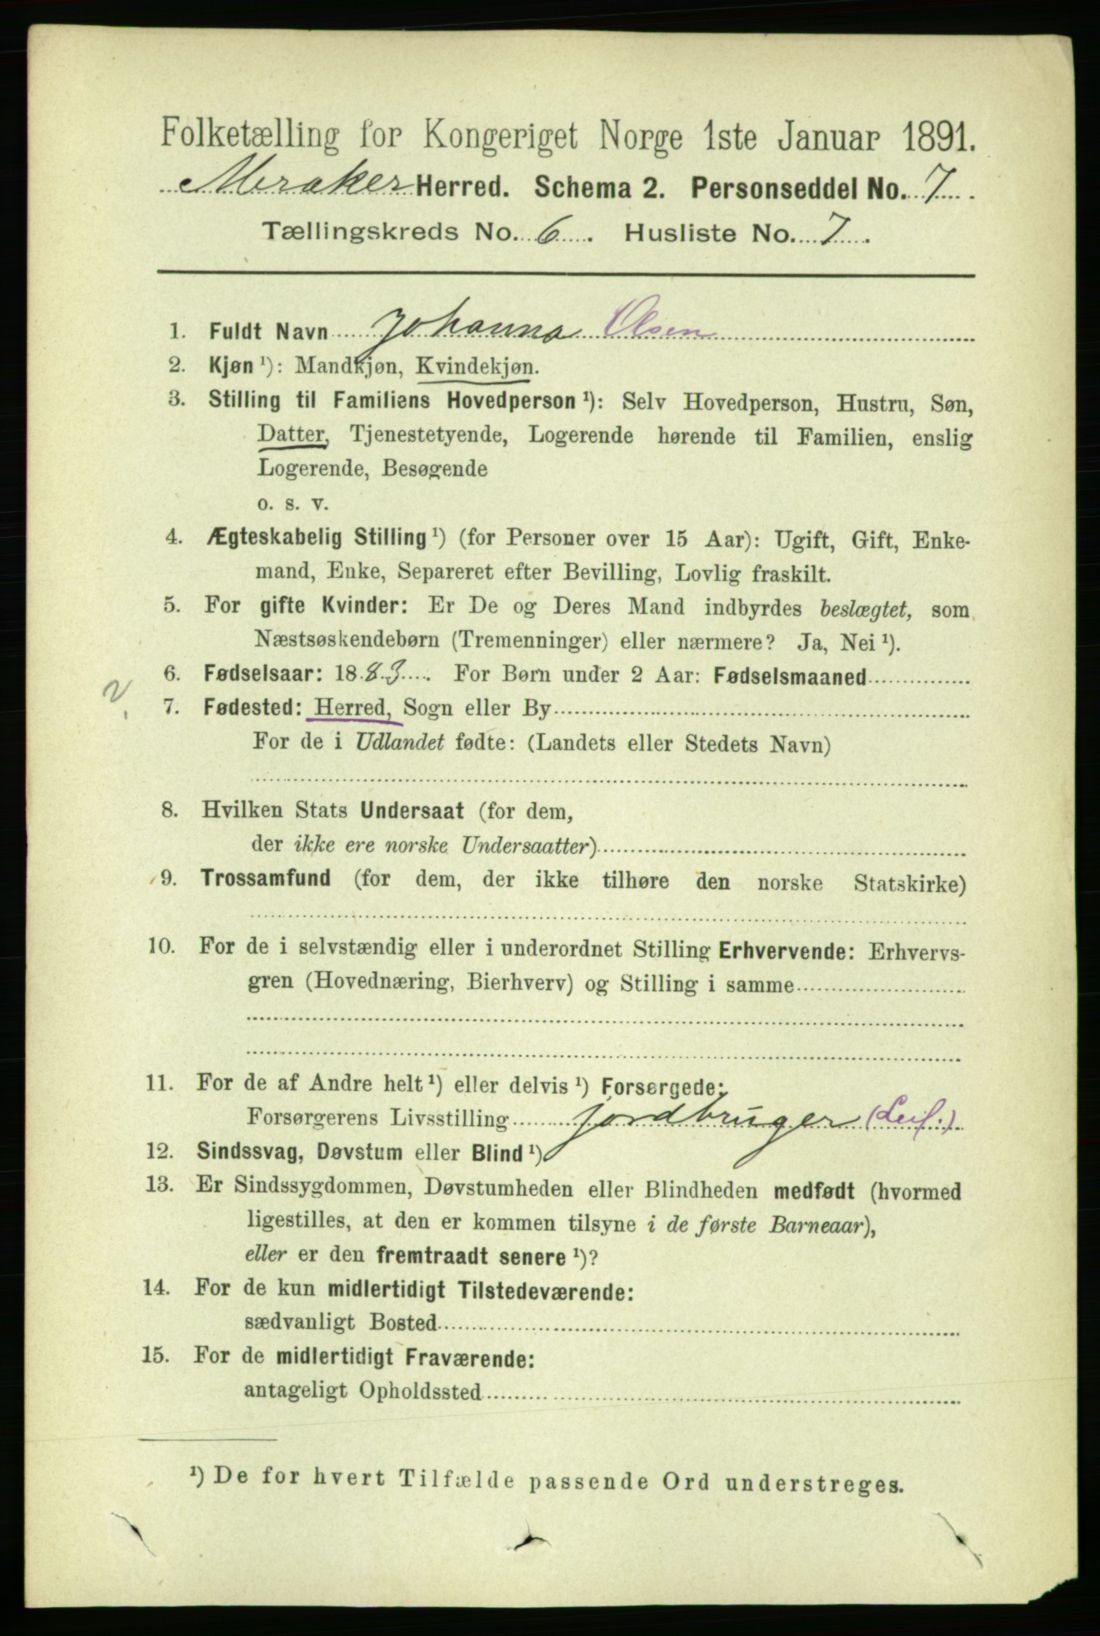 Folketælling for Kongeriget Norge 1ste Januar 1891.
Meraker Herred. Schema 2. Personseddel No. 7.
Tællingskreds No. 6. Husliste No. 7.
1. Fuldt Navn Johanna Olsen
2. Kjøn ¹): Mandkjøn, Kvindekjøn.
3. Stilling til Familiens Hovedperson ¹): Selv Hovedperson, Hustru, Søn,
Datter, Tjenestetyende, Logerende hørende til Familien, enslig
Logerende, Besøgende
o. s. v.
4. Ægteskabelig Stilling ¹) (for Personer over 15 Aar): Ugift, Gift, Enke-
mand, Enke, Separeret efter Bevilling, Lovlig fraskilt.
5. For gifte Kvinder: Er De og Deres Mand indbyrdes beslægtet, som
Næstsøskendebørn (Tremenninger) eller nærmere? Ja, Nei ¹).
6. Fødselsaar: 1883. For Børn under 2 Aar: Fødselsmaaned
2.
7. Fødested: Herred, Sogn eller By
For de i Udlandet fødte: (Landets eller Stedets Navn)
8. Hvilken Stats Undersaat (for dem,
der ikke ere norske Undersaatter)
9. Trossamfund (for dem, der ikke tilhøre den norske Statskirke)
10. For de i selvstændig eller i underordnet Stilling Erhvervende: Erhvervs-
gren (Hovednæring, Bierhverv) og Stilling i samme
11. For de af Andre helt ¹) eller delvis ¹) Forsørgede:
Forsørgerens Livsstilling jordbruger
12. Sindssvag, Døvstum eller Blind ¹)
13. Er Sindssygdommen, Døvstumheden eller Blindheden medfødt (hvormed
ligestilles, at den er kommen tilsyne i de første Barneaar),
eller er den fremtraadt senere ¹)?
14. For de kun midlertidigt Tilstedeværende:
sædvanligt Bosted
15. For de midlertidigt Fraværende:
antageligt Opholdssted
¹) De for hvert Tilfælde passende Ord understreges.